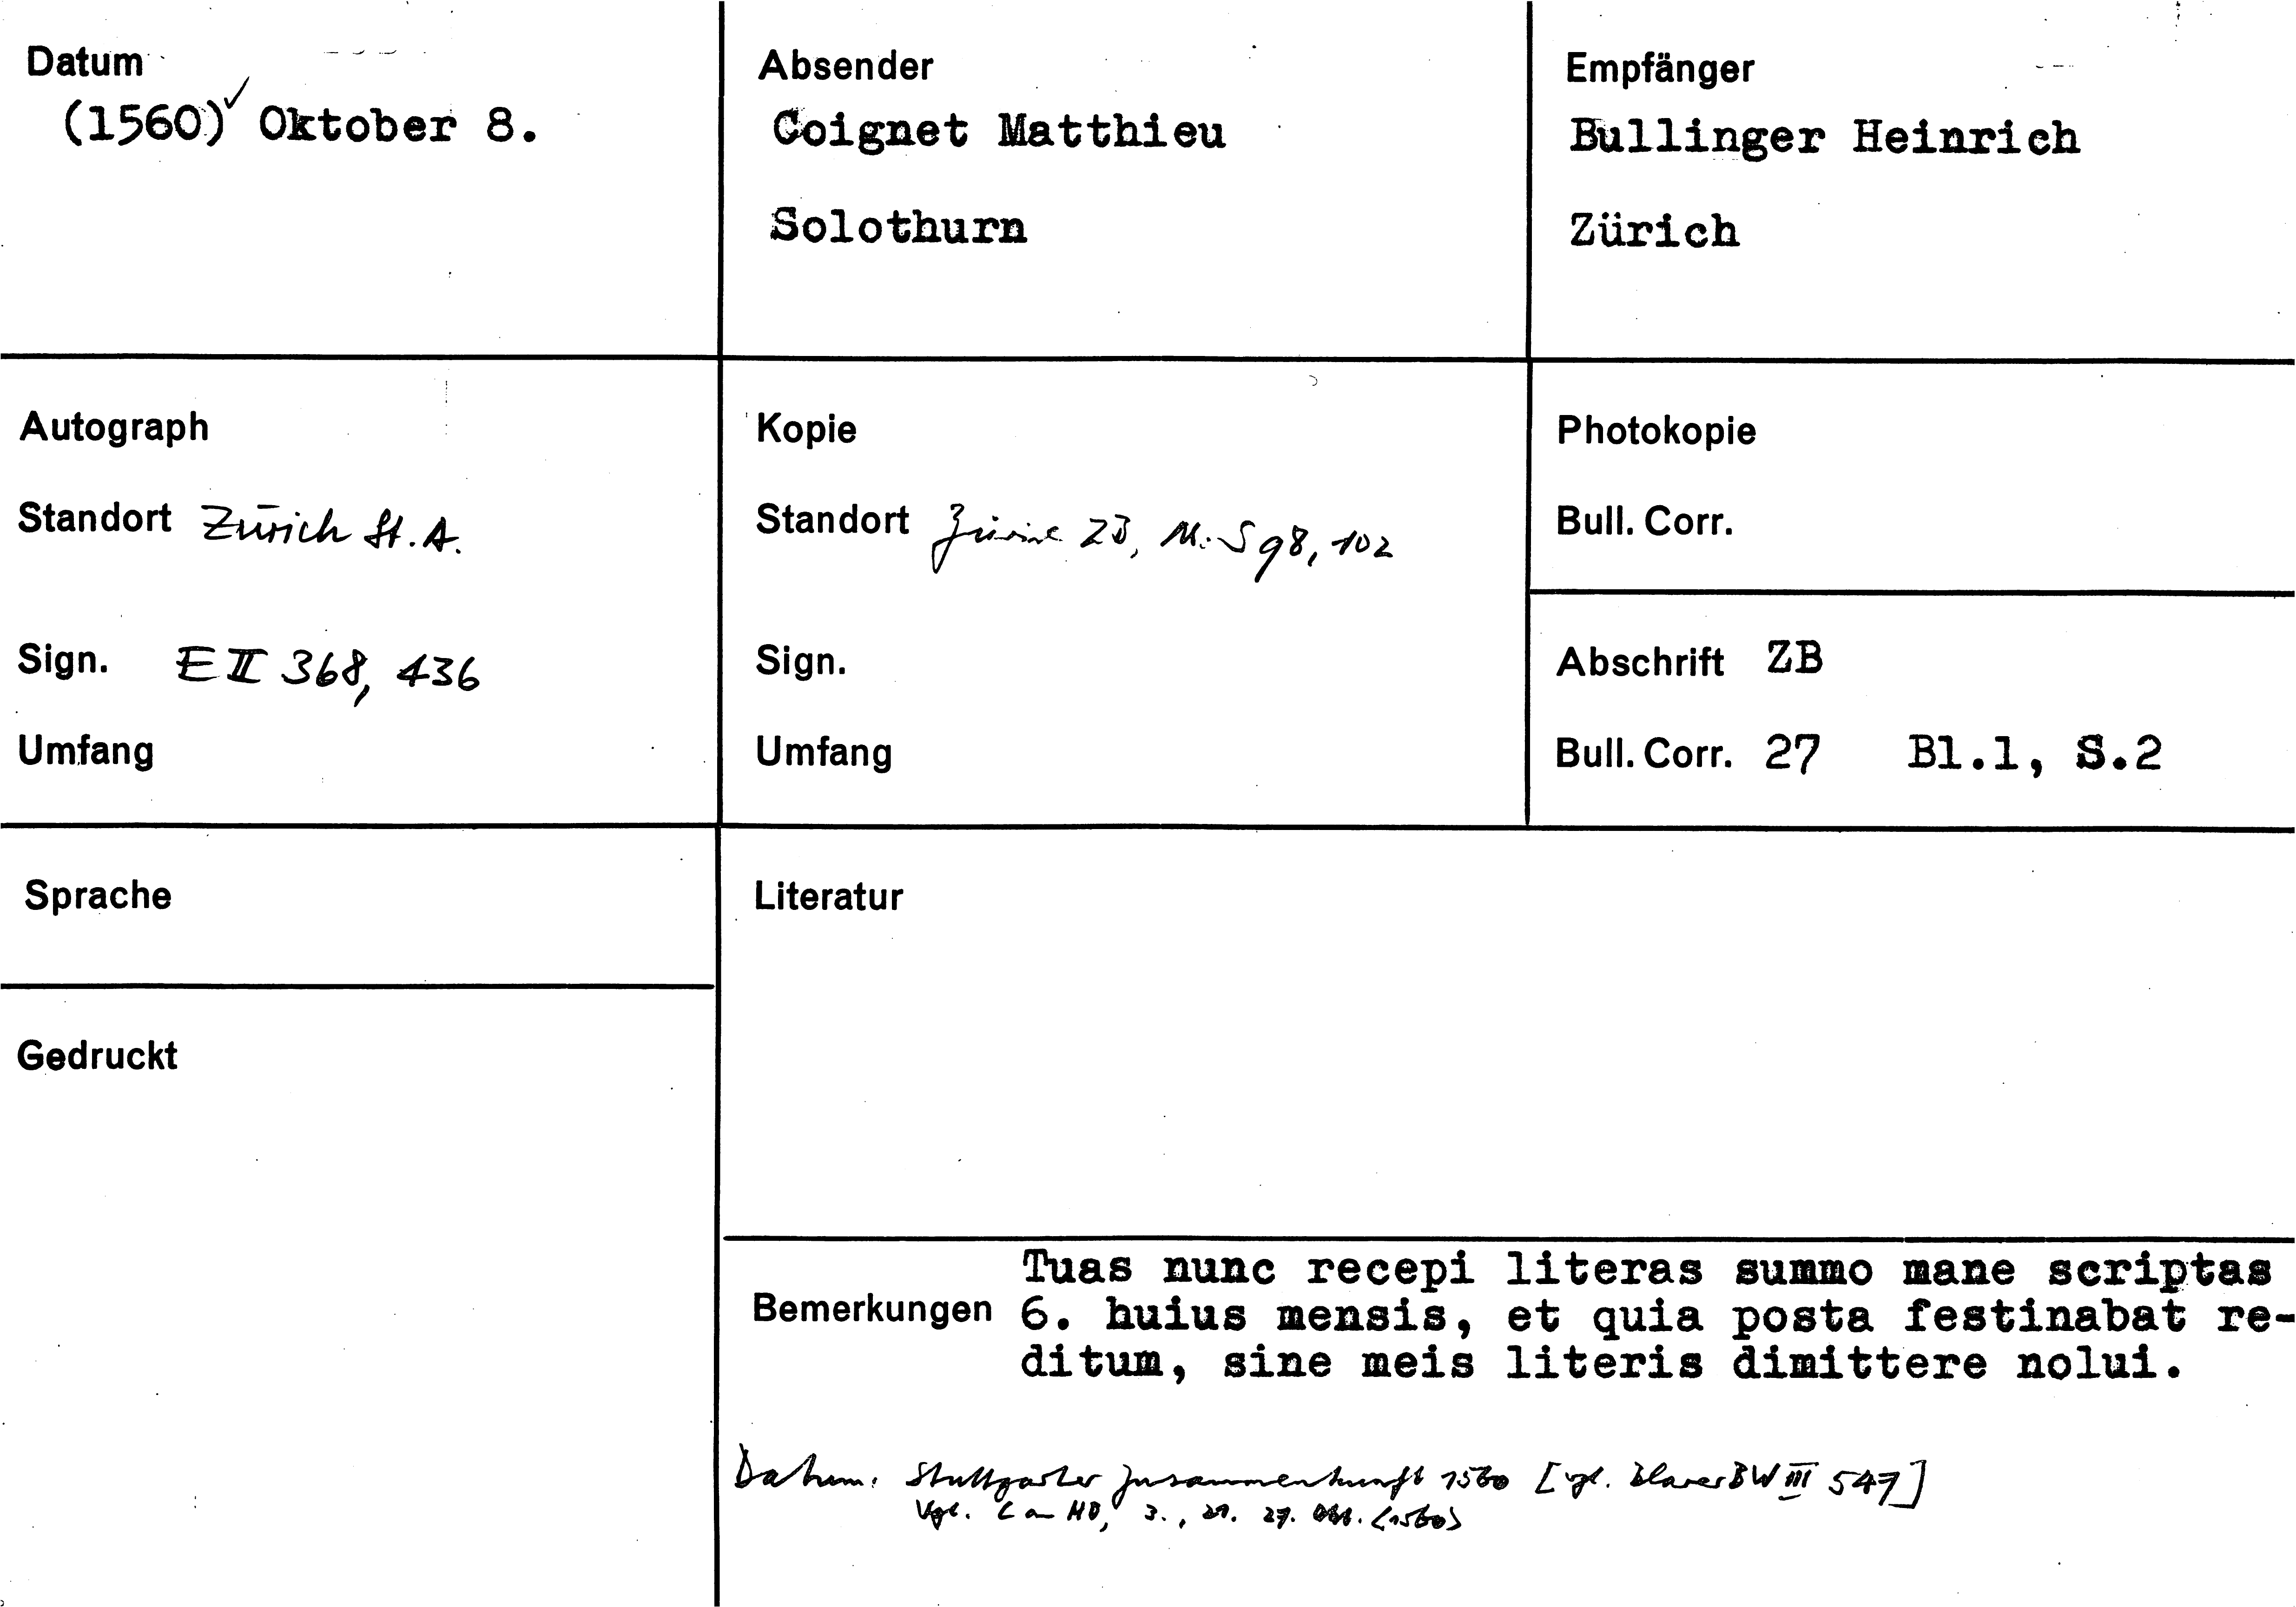 Datum
(1560)✓ Oktober 8.
Absender
Coignet Matthieu
Solothurn
Empfänger
Bullinger Heinrich
Zürich
Autograph
Standort Zürich St. A.
Sign. E II 368, 436
Umfang
Kopie
Standort Zürich ZB, Ms. S 98, 102
Sign.
Umfang
Photokopie
Bull. Corr.
Abschrift ZB
Bull. Corr. 27 Bl.1, S.2
Sprache
Gedruckt
Literatur
Bemerkungen
Tuas nunc recepi literas summo mane scriptas
6. huius mensis, et quia posta festinabat re-
ditum, sine meis literis dimittere nolui.
Datum: Stuttgarter Zusammenkunft 1560 [vgl. Blarer BW III 547]
Vgl. C an HB, 3., 21. 27. Okt. (1560)